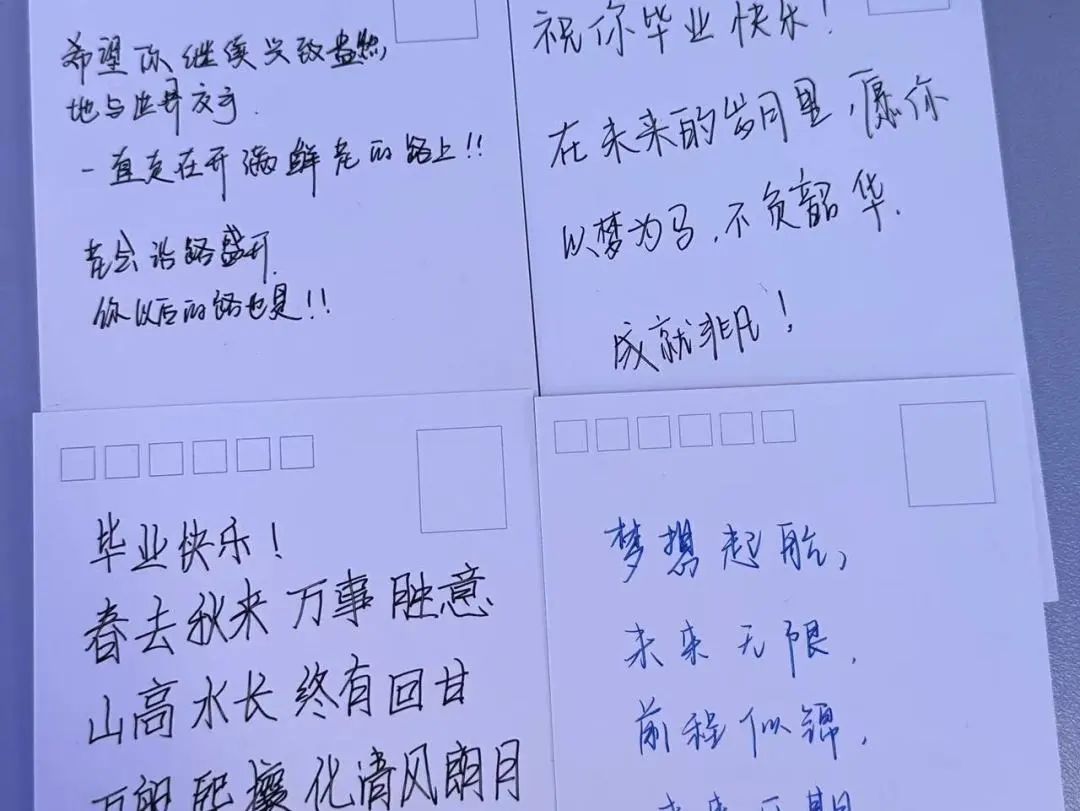 希望你继续兴致盎然
地与世界交手.
一直走在开满鲜花的路上!!
花会沿路盛开.
你以后的路也是!!
祝你毕业快乐!
在未来的岁月里,愿你
以梦为马,不负韶华.
成就非凡!
毕业快乐!
春去秋来 万事胜意
山高水长 终有回甘
万朝熙攘 化清风朗月
梦想起航,
未来无限,
前程似锦,
未来可期